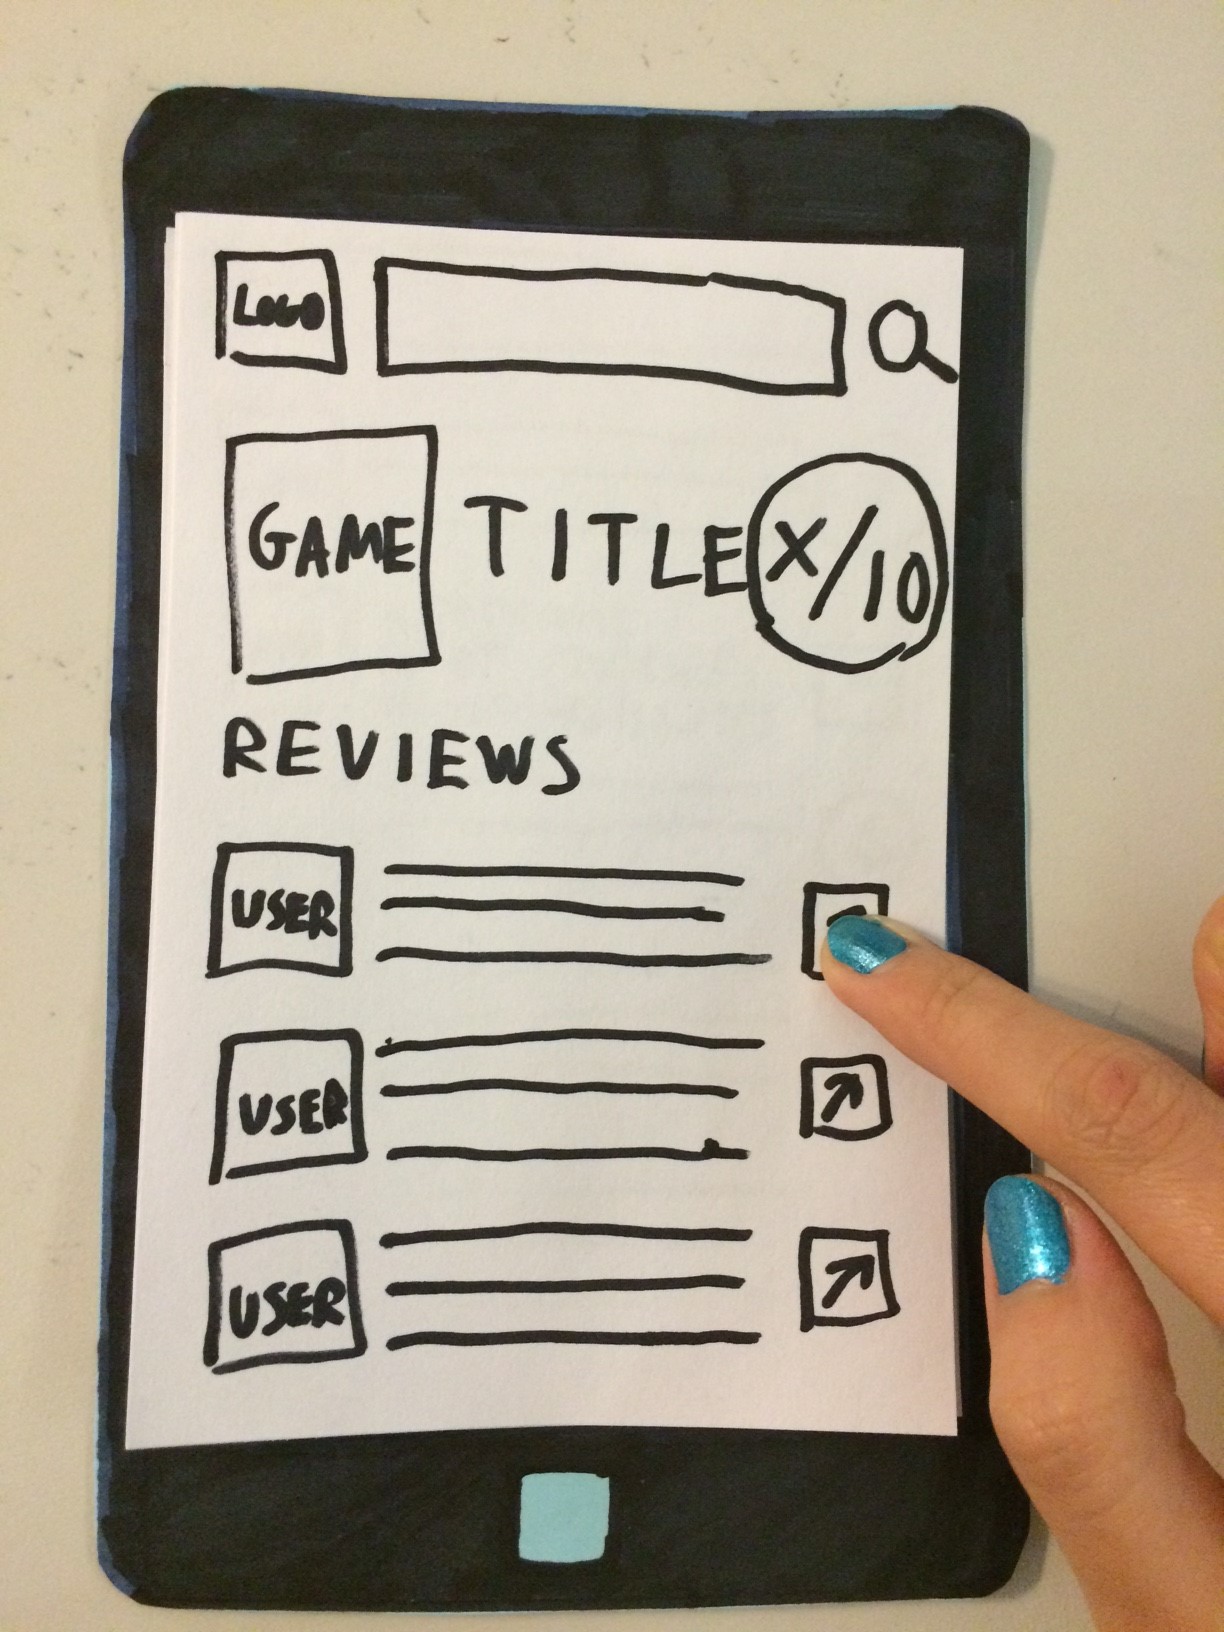 LOGO
GAME TITLE X/10
REVIEWS
USER
USER
USER